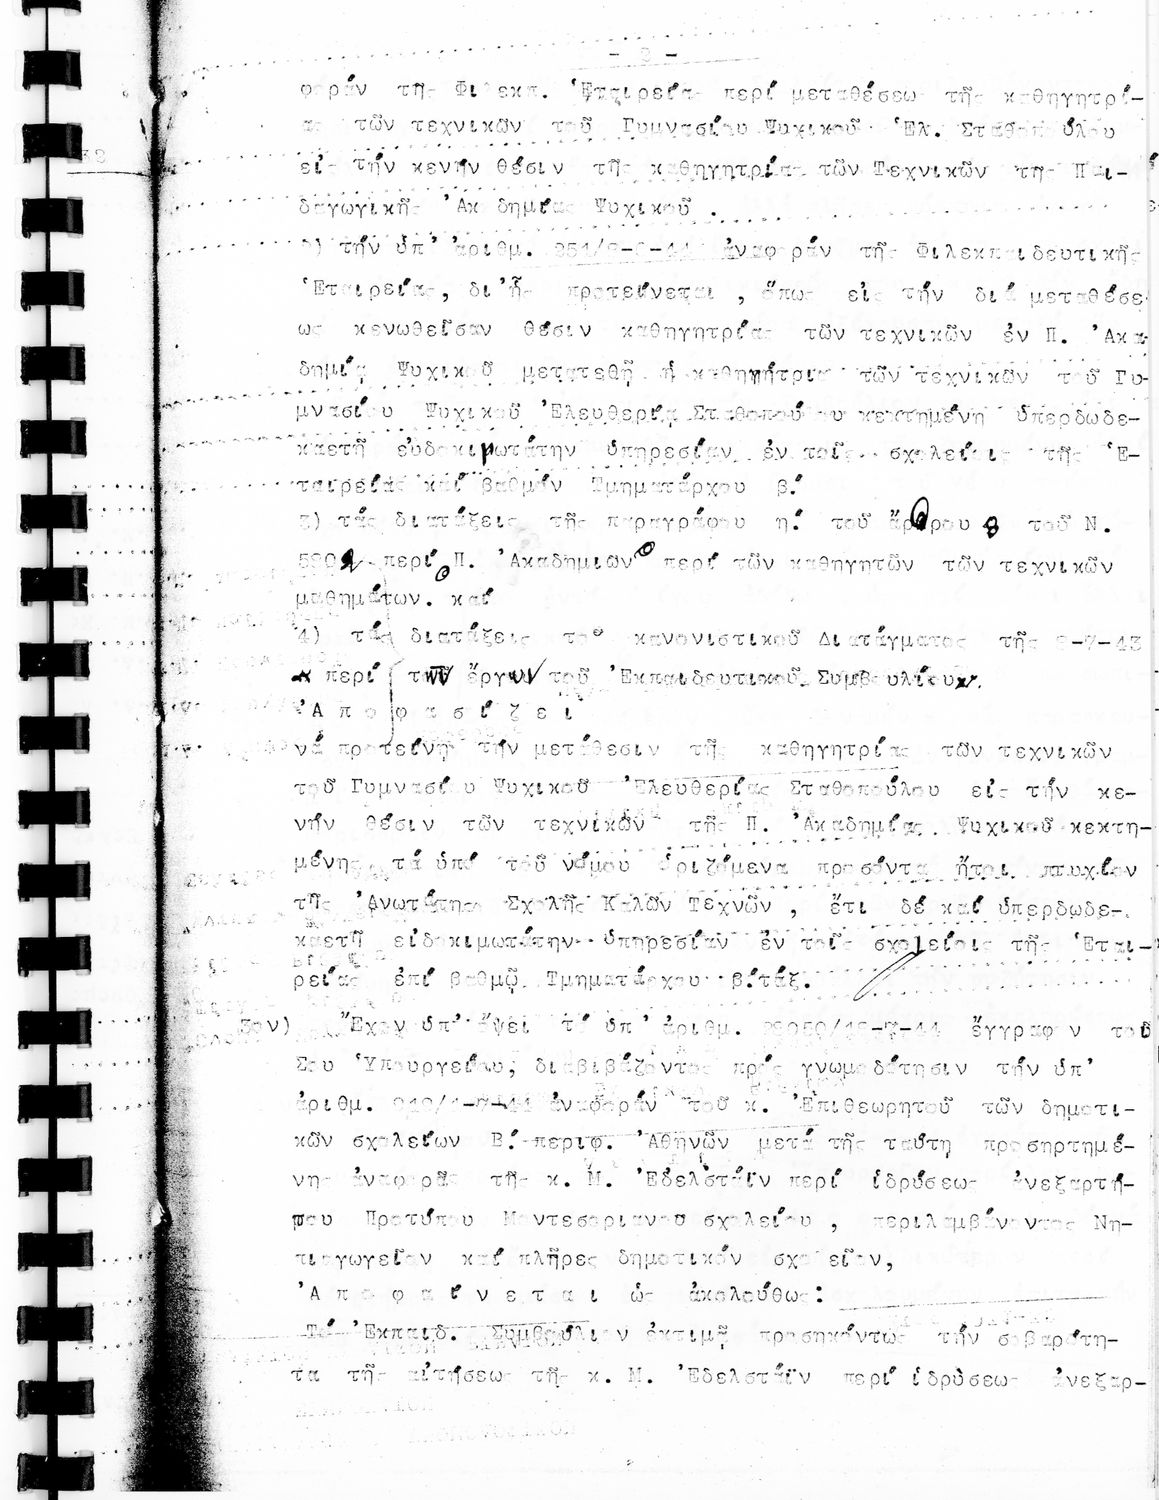 - 2 -
φοράν τῆς Φιλεκπ. Ἑταιρείας περί μεταθέσεως τῆς καθηγητρί-
ας τῶν τεχνικῶν τοῦ Γυμνασίου Ψυχικοῦ Ἐλ. Σταθοπούλου
εἰς τήν κενήν θέσιν τῆς καθηγητρίας τῶν Τεχνικῶν τῆς Παι-
δαγωγικῆς Ἀκαδημίας Ψυχικοῦ .
2) τήν ὑπ' ἀριθμ. ἀναφοράν τῆς Φιλεκπαιδευτικῆς
Ἑταιρείας, δι'ἧς προτείνεται , ὅπως εἰς τήν διά μεταθέσε
ως κενωθεῖσαν θέσιν καθηγητρίας τῶν τεχνικῶν ἐν Π. Ἀκα
δημίᾳ Ψυχικοῦ μετατεθῇ ἡ καθηγήτρια τῶν τεχνικῶν τοῦ Γυ-
μνασίου Ψυχικοῦ Ἐλευθερία Σταθοπούλου κεκτημένη ὑπερδωδε-
καετῆ εὐδοκιμωτάτην ὑπηρεσίαν ἐν τοῖς σχολείοις τῆς Ἑ-
ταιρείας καί βαθμόν Τμηματάρχου β.΄
3) τάς διατάξεις τῆς παραγράφου η.΄ τοῦ ἄρθρου 8 τοῦ Ν.
περί Π. Ἀκαδημιῶν περί τῶν καθηγητῶν τῶν τεχνικῶν
μαθημάτων. καί
4) τάς διατάξεις τοῦ κανονιστικοῦ Διατάγματος τῆς
περί τῶν ἔργων τοῦ Ἐκπαιδευτικοῦ Συμβουλίου.
Ἀ π ο φ α σ ί ζ ε ι
νά προτείνῃ τήν μετάθεσιν τῆς καθηγητρίας τῶν τεχνικῶν
τοῦ Γυμνασίου Ψυχικοῦ Ἐλευθερίας Σταθοπούλου εἰς τήν κε-
νήν θέσιν τῶν τεχνικῶν τῆς Π. Ἀκαδημίας Ψυχικοῦ κεκτη-
μένης τά ὑπό τοῦ νόμου ὁριζόμενα προσόντα ἤτοι πτυχίον
τῆς Ἀνωτάτης Σχολῆς Καλῶν Τεχνῶν , ἔτι δέ καί ὑπερδωδε-
καετῆ εὐδοκιμωτάτην ὑπηρεσίαν ἐν τοῖς σχολείοις τῆς Ἑται-
ρείας ἐπί βαθμῷ Τμηματάρχου β.΄τάξ.
3ον) Ἔχον ὑπ' ὄψει τό ὑπ' ἀριθμ. ἔγγραφον τοῦ
Σου Ὑπουργείου, διαβιβάζοντος πρός γνωμοδότησιν τήν ὑπ'
ἀριθμ. ἀναφοράν τοῦ κ. Ἐπιθεωρητοῦ τῶν δημοτι-
κῶν σχολείων Β.΄ περιφ. Ἀθηνῶν μετά τῆς ταύτῃ προσηρτημέ-
νης ἀναφορᾶς τῆς κ. Μ. Ἐδελστάϊν περί ἱδρύσεως ἀνεξαρτή-
του Προτύπου Μοντεσοριανοῦ σχολείου , περιλαμβάνοντος Νη-
πιαγωγεῖον καί πλῆρες δημοτικόν σχολεῖον,
Ἀ π ο φ α ί ν ε τ α ι ὡς ἀκολούθως:
Τό Ἐκπαιδ. Συμβούλιον ἐκτιμᾷ προσηκόντως τήν σοβαρότη-
τα τῆς αἰτήσεως τῆς κ. Μ. Ἐδελστάϊν περί ἱδρύσεως ἀνεξαρ-